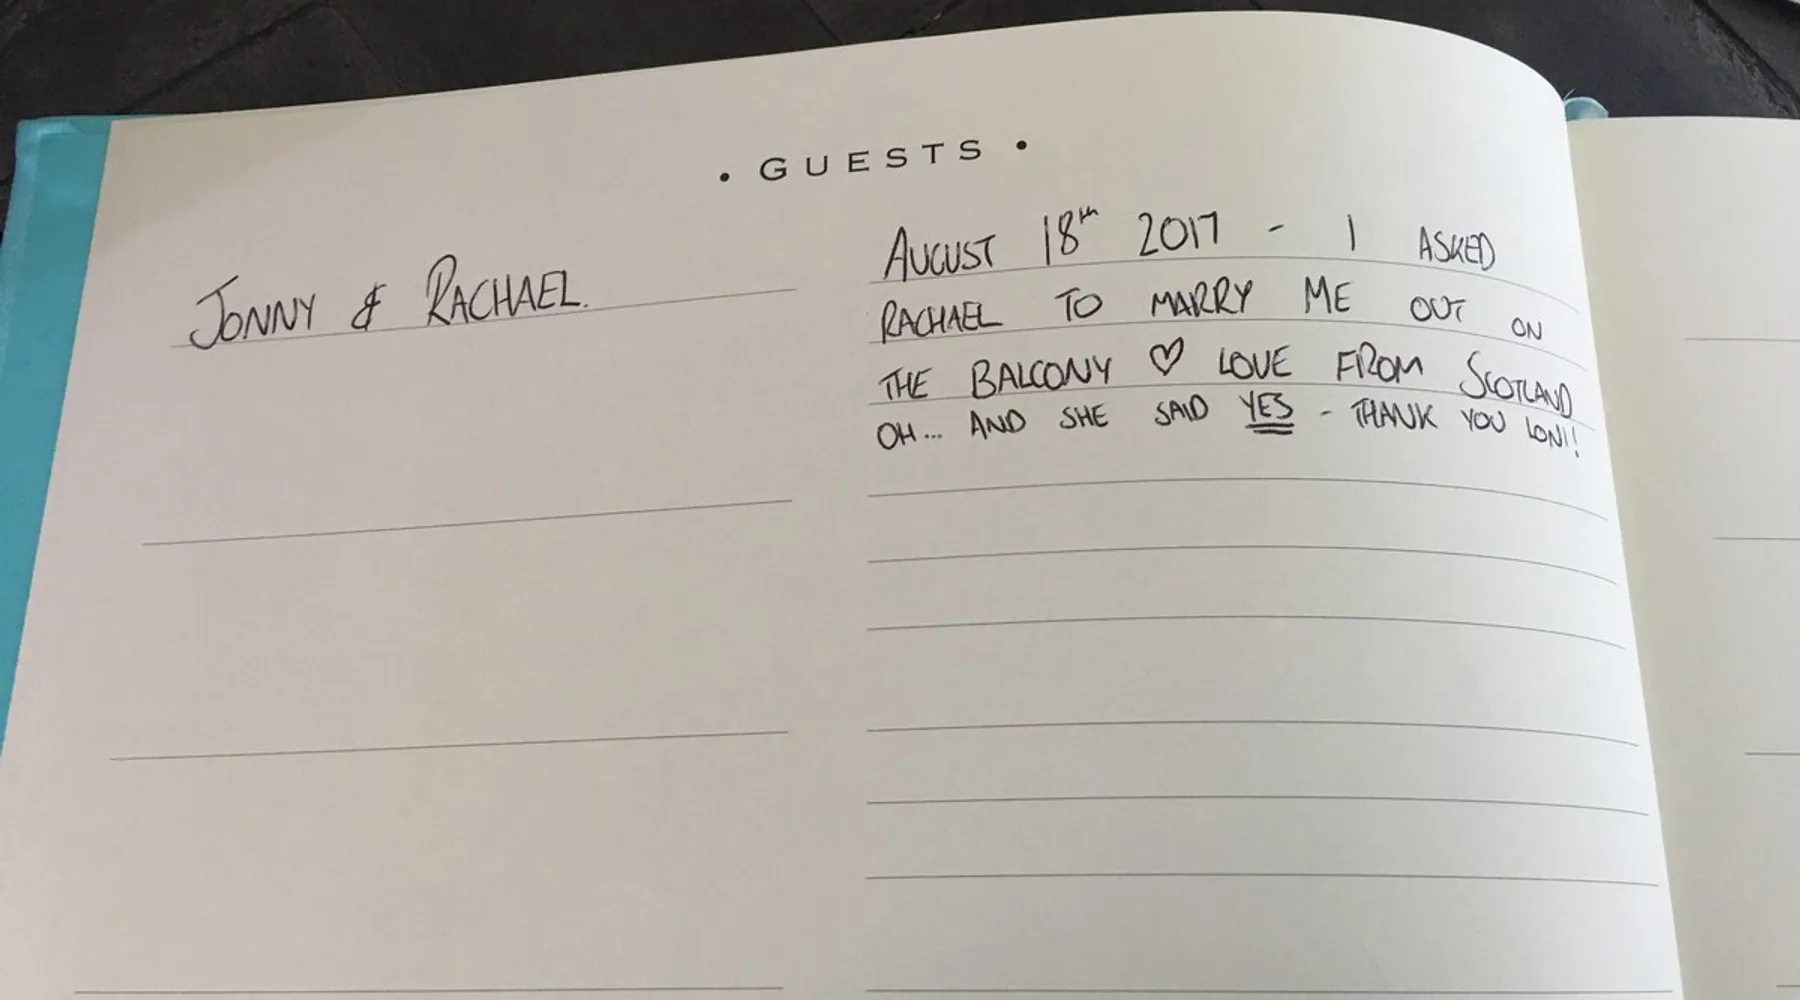 • GUESTS •
JONNY & RACHAEL.
AUGUST 18th 2017 - I ASKED
RACHAEL TO MARRY ME OUT ON
THE BALCONY ♡ LOVE FROM SCOTLAND
OH... AND SHE SAID YES - THANK YOU LONI!